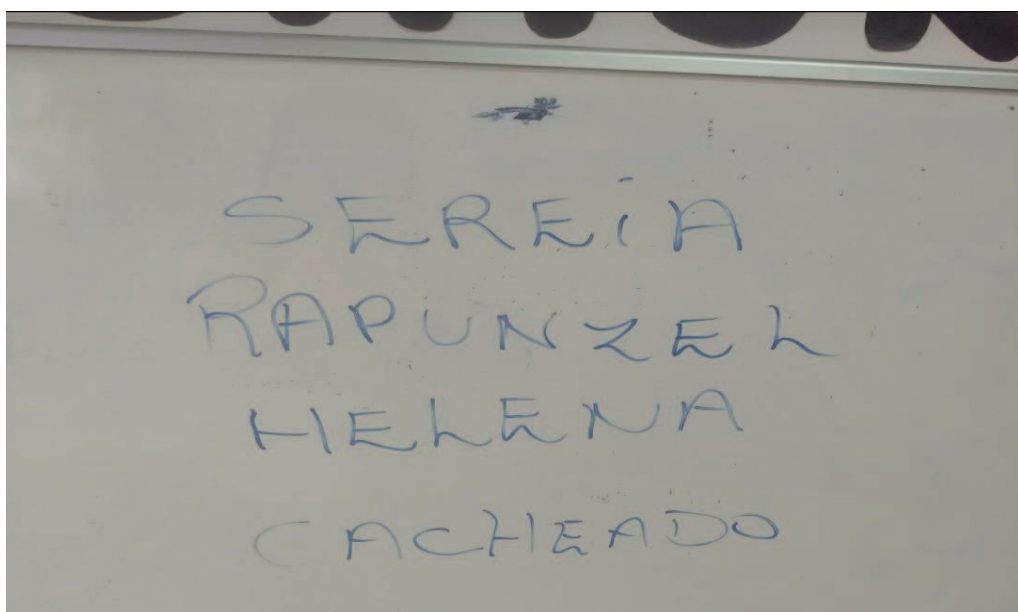 SEREiA
RAPUNZEL
HELENA
CACHEADO